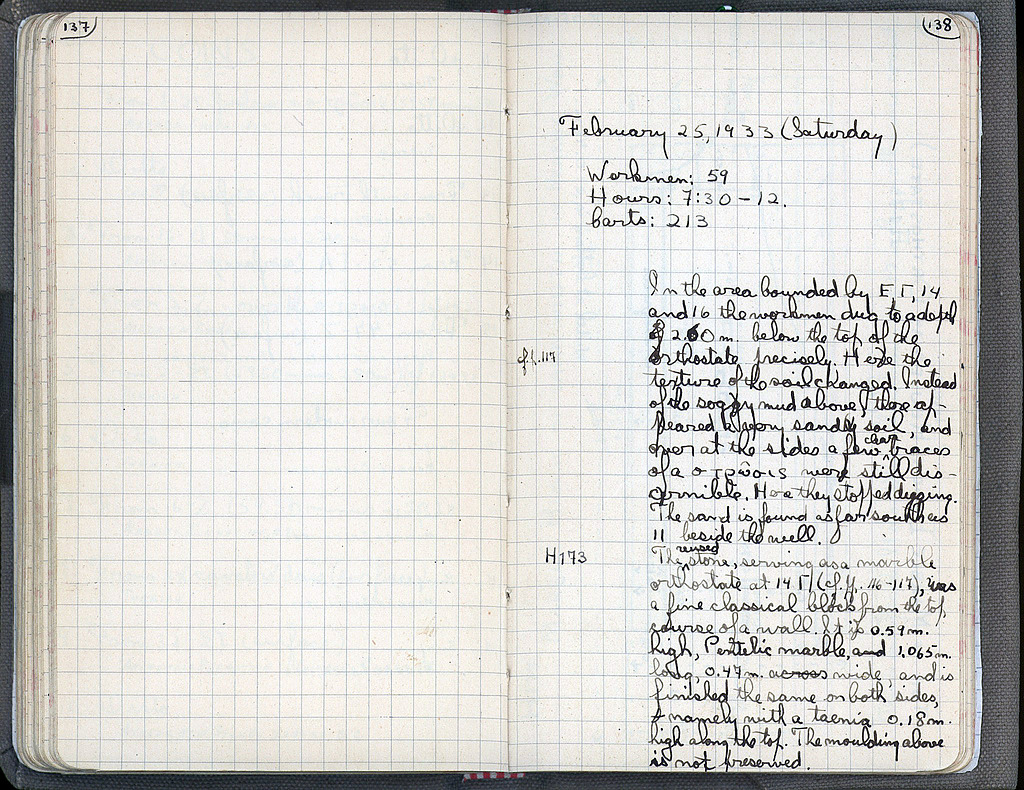 137
138
February 25, 1933 (Saturday)
Workmen: 59
Hours: 7:30 – 12.
Carts: 213
In the area bounded by E, Γ, 14
and 16 the workmen dug to a depth
of 2.60 m. below the top of the
cf. p. 117
orthostate precisely. Here the
texture of the soil changed. Instead
of the soggy mud above, there ap-
peared a very sandy soil, and
over at the sides a few clear traces
of a στρῶσις were still dis-
cernible. Here they stopped digging.
The sand is found as far south as
11 beside the well.
H173
The reused stone, serving as a marble
orthostate at 14 Γ (cf. pp. 116-117), was
a fine classical block from the top
course of a wall. It is 0.59 m.
high, Pentelic marble, and 1.065 m.
long, 0.47 m. across wide, and is
finished the same on both sides,
namely with a taenia 0.18 m.
high along the top. The moulding above
is not preserved.